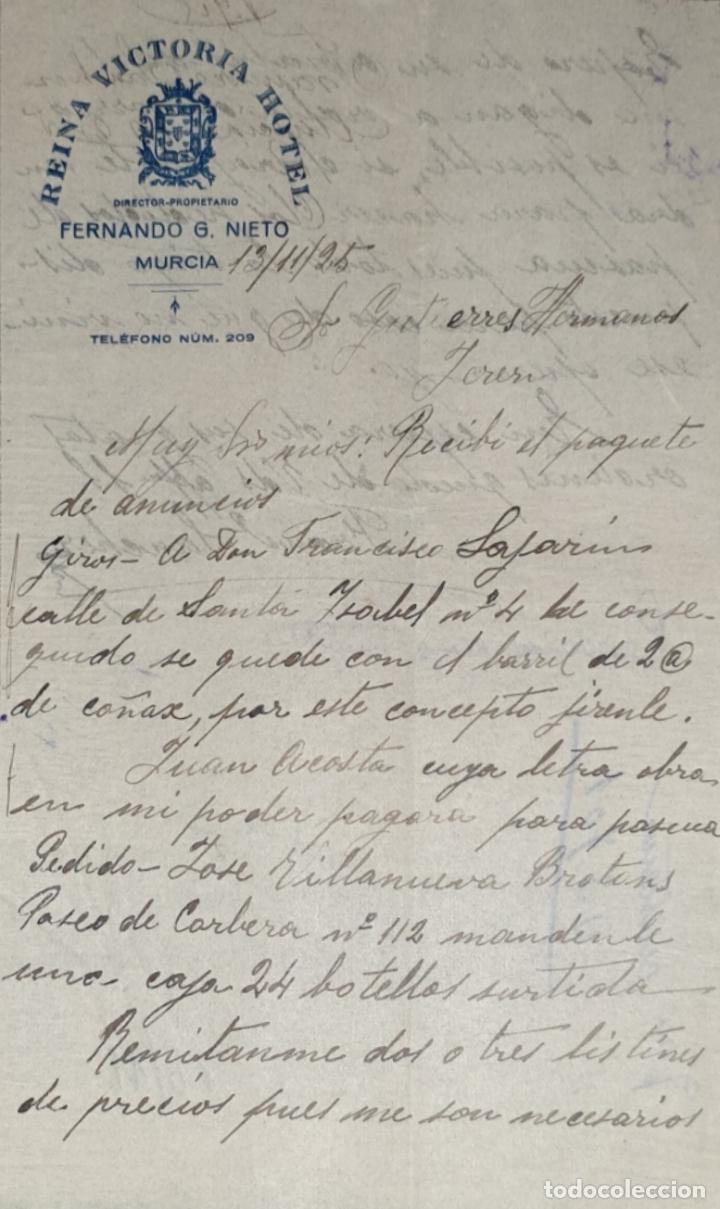 REINA VICTORIA HOTEL
DIRECTOR-PROPIETARIO
FERNANDO G. NIETO
MURCIA 13/11/25
TELÉFONO NÚM. 209
Sr Gutierres Hermanos
Jerez
Muy Srs mios: Recibi el paquete
de anuncios
Giros - A Don Francisco Lajarin
calle de Santa Isabel nº 4 he conse-
guido se quede con el barril de 2@
de coñax, por este concepto jirenle.
Juan Acosta cuya letra obra
en mi poder pagara para pascua
Pedido - Jose Villanueva Brotons
Paseo de Corbera nº 112 mandenle
una caja 24 botellas surtida
Remitanme dos o tres listines
de precios pues me son necesarios
todocoleccion